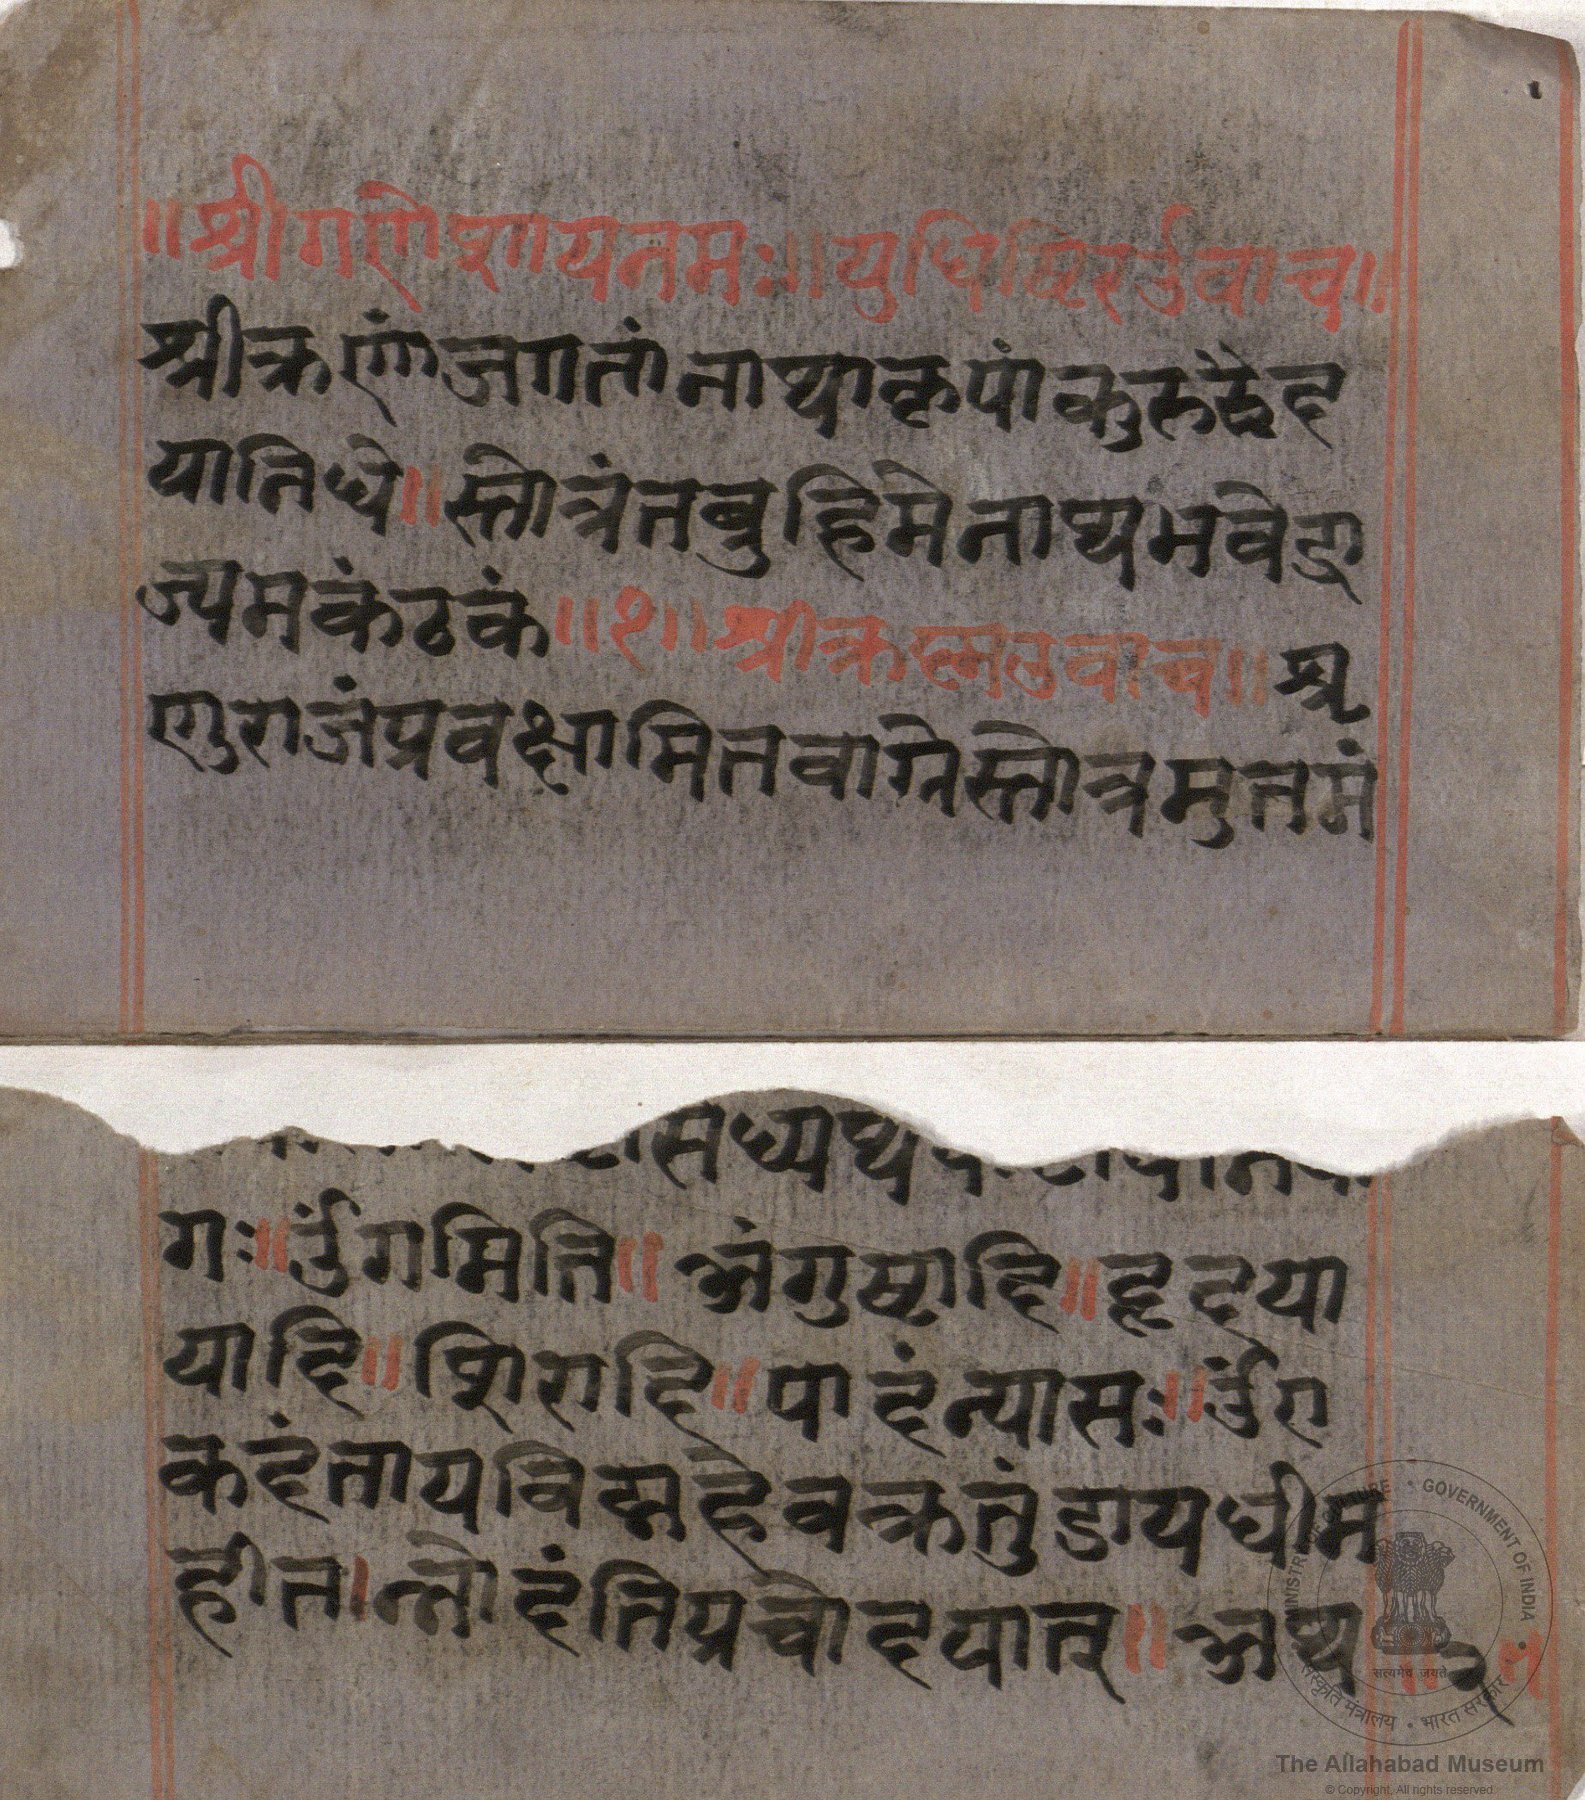 ॥श्रीगणेशायनमः॥युधिष्ठिरउवाच॥
श्रीक्रष्णंजगतांनाथाकृपांकुरुहेद
यानिधे॥स्तोत्रंतबुहिमेनाथभवेद्रा
ज्यमकंठकं॥१॥श्रीक्रष्णउवाच॥श्रृ
णुराजंप्रवक्षामितवाग्रेस्तोत्रमुतमं
गः॥ॐगमिति॥अंगुष्ठादि॥हृदया
यादि॥शिरादि॥पादंन्यासः॥ॐए
कदंतायविद्महेवक्रतुंडायधीम
हीत।न्नोदंतिप्रचोदयात्॥अथ॥२॥
MINISTRY OF CULTURE • GOVERNMENT OF INDIA
सत्यमेव जयते
संस्कृति मंत्रालय • भारत सरकार
The Allahabad Museum
© Copyright, All rights reserved